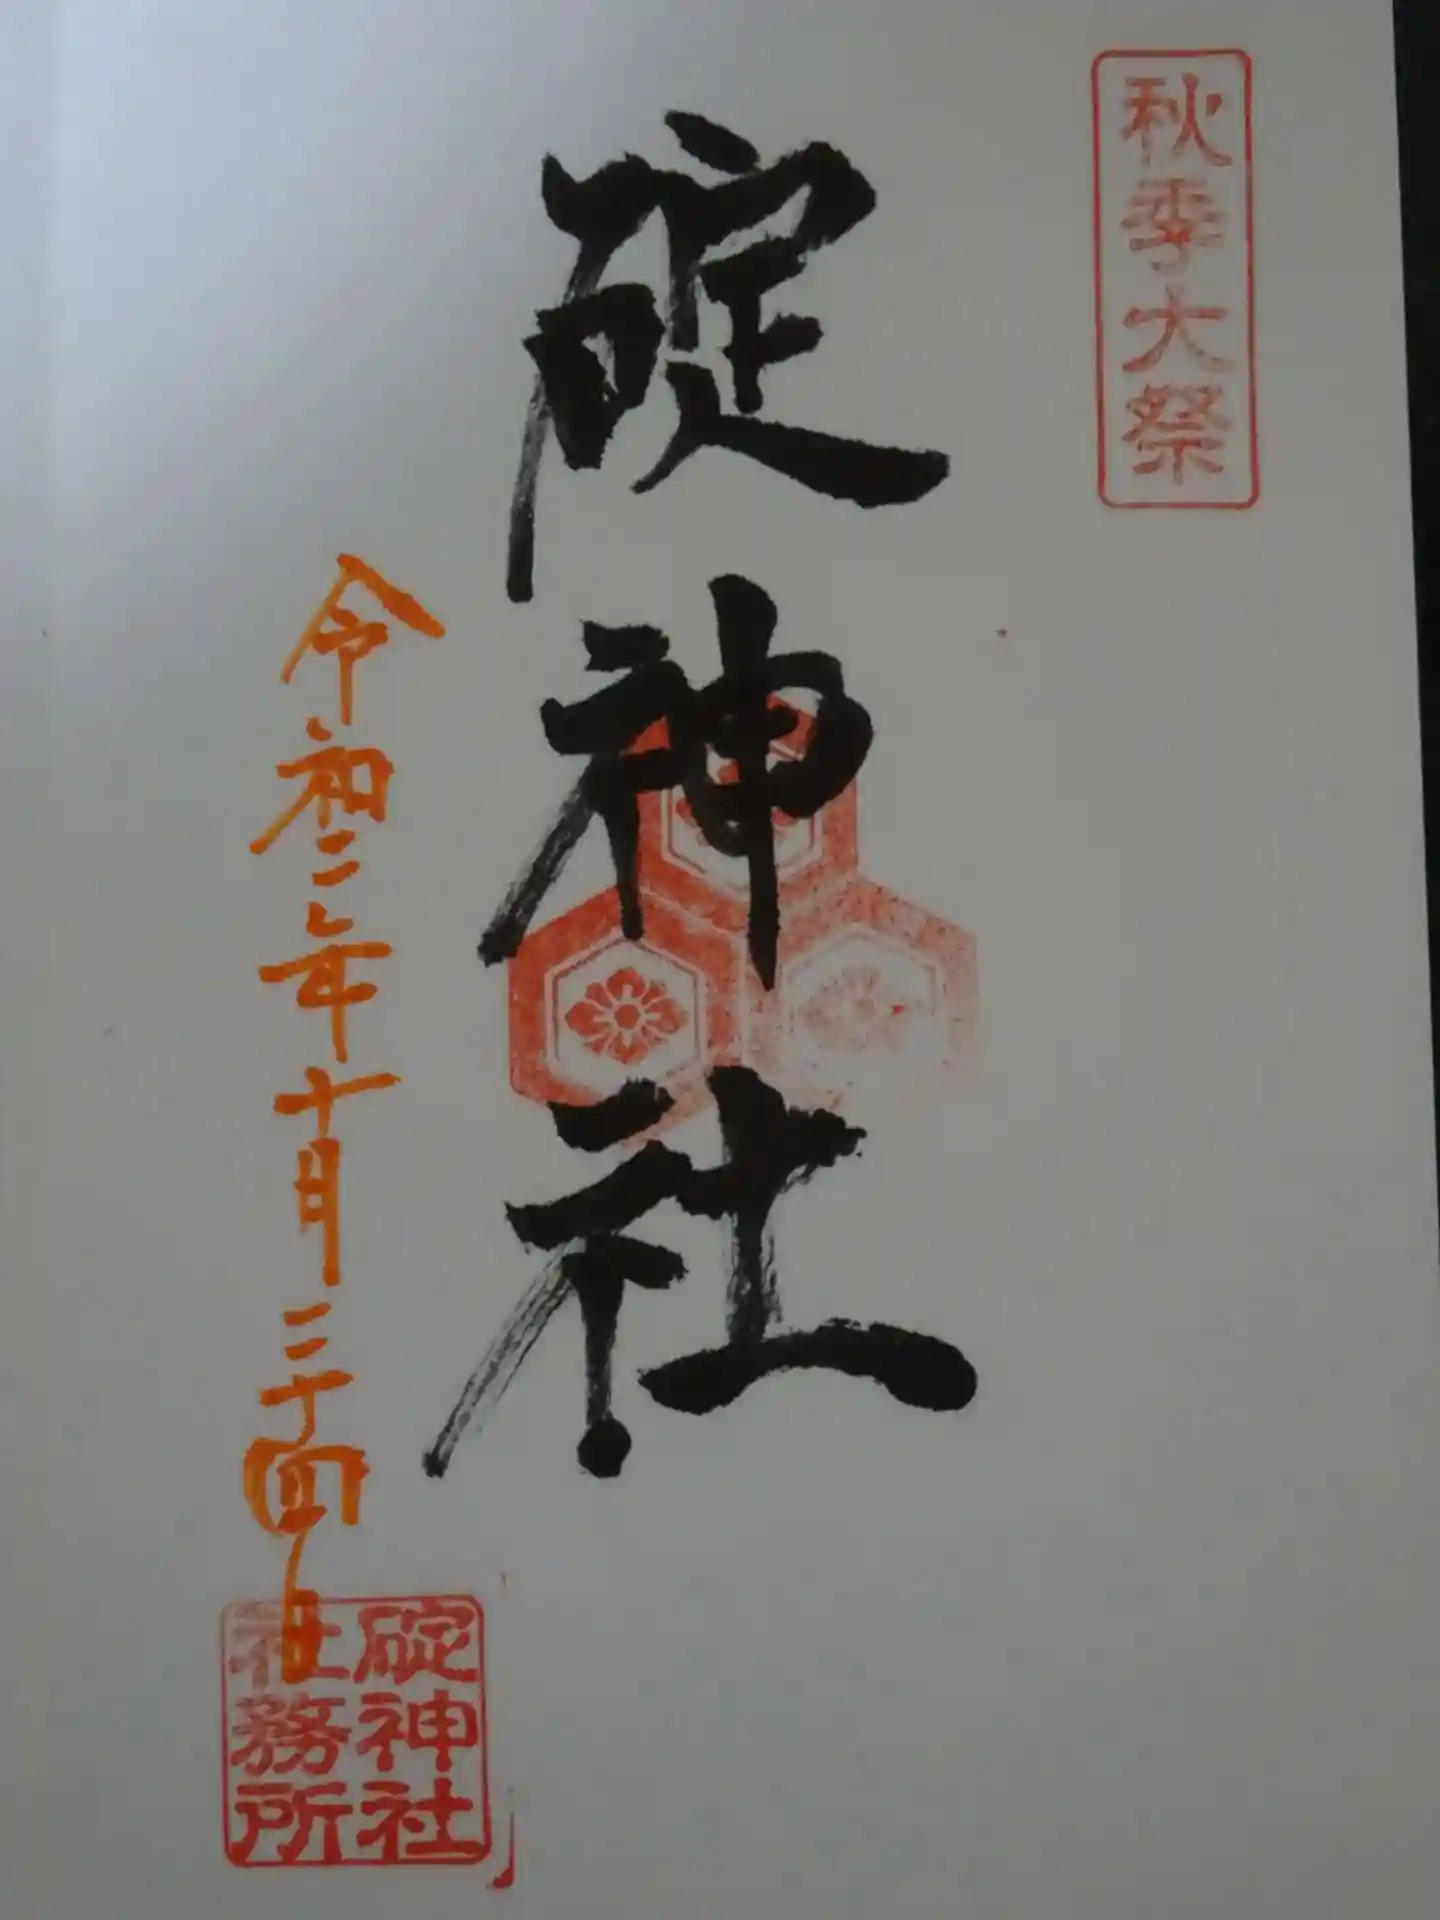 秋季大祭
碇神社
令和二年十月二十四日
碇神社
社務所